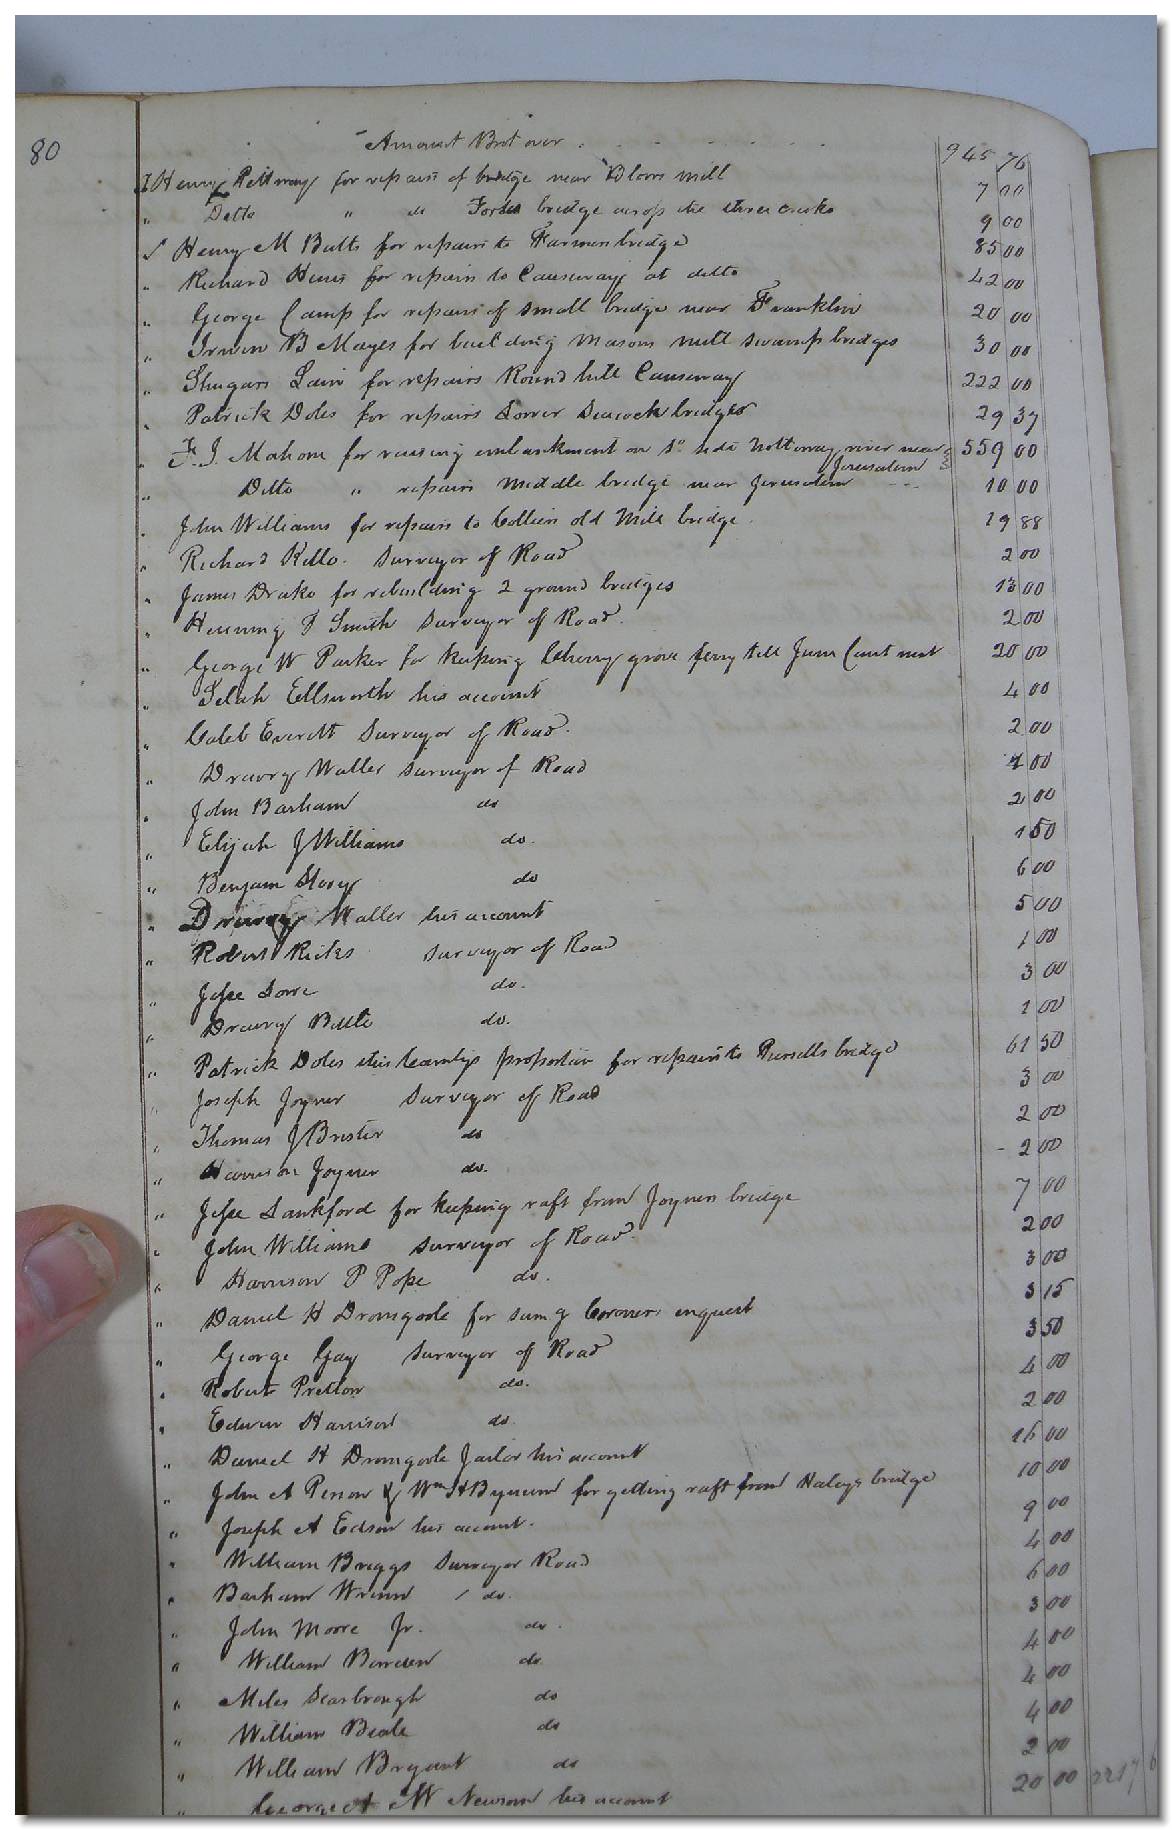 80
Amount Brot over 945 76
To Henry Pettway for repairs of bridge near Blows mill 7 00
" Ditto " do Fords bridge across the three creeks 9 00
" Henry M Butts for repairs to Farmers bridge 85 00
" Richard for repairs to Causeway at ditto 42 00
" George Camp for repairs of small bridge near Franklin 20 00
" Irwin B Mayes for building Masons mill swamp bridges 30 00
" Shugars Lain for repairs Round hill Causeway 222 00
" Patrick Doles for repairs Lower Seacock bridges 29 37
" F. J. Mahone for raising embankment on So side Nottoway river near 559 00
Jerusalem
" Ditto " repairs middle bridge near Jerusalem 10 00
" John Williams for repairs to old Mill bridge 19 88
" Richard Kello. Surveyor of Road 2 00
" James Drake for rebuilding 2 ground bridges 13 00
" Henning T Smith Surveyor of Road. 2 00
" George W Parker for keeping Cherry grove ferry till June Court next 20 00
" Selah Ellsworth his account 4 00
" Caleb Everett Surveyor of Road. 2 00
" Drewry Waller surveyor of Road 4 00
" John Barham do 2 00
" Elijah J Williams do. 1 50
" Benjam Story do 6 00
" Drewry Waller his account 5 00
" Robert Ricks Surveyor of Road 1 00
" Jesse Lowe do. 3 00
" Drewry Butts do. 1 00
" Patrick Doles this County's proportion for repairs to Pursells bridge 61 50
" Joseph Joyner Surveyor of Road 3 00
" Thomas J Brister do 2 00
" Harrison Joyner do. 2 00
" Jesse Lankford for keeping raft from Joyners bridge 7 00
" John Williams surveyor of Road. 2 00
" Harrison P Pope do. 3 00
" Daniel H Dromgoole for sum.g Coroners inquest 3 15
" George Gay Surveyor of Road 3 50
" Robert Pretlow do. 4 00
" Edwin Harrison do. 2 00
" Daniel H Dromgoole Jailor his account 16 00
" John A Person & Wm H Bynum for getting raft from Haleys bridge 10 00
" Joseph A Edson his account. 9 00
" William Briggs Surveyor Road 4 00
" Barham Wrenn do. 6 00
" John Moore Jr. do. 3 00
" William Bowden do. 4 00
" Miles Scarbrough do 4 00
" William Beale do 4 00
" William Bryant do 2 00
" George M Newsom his account 20 00 2217 6